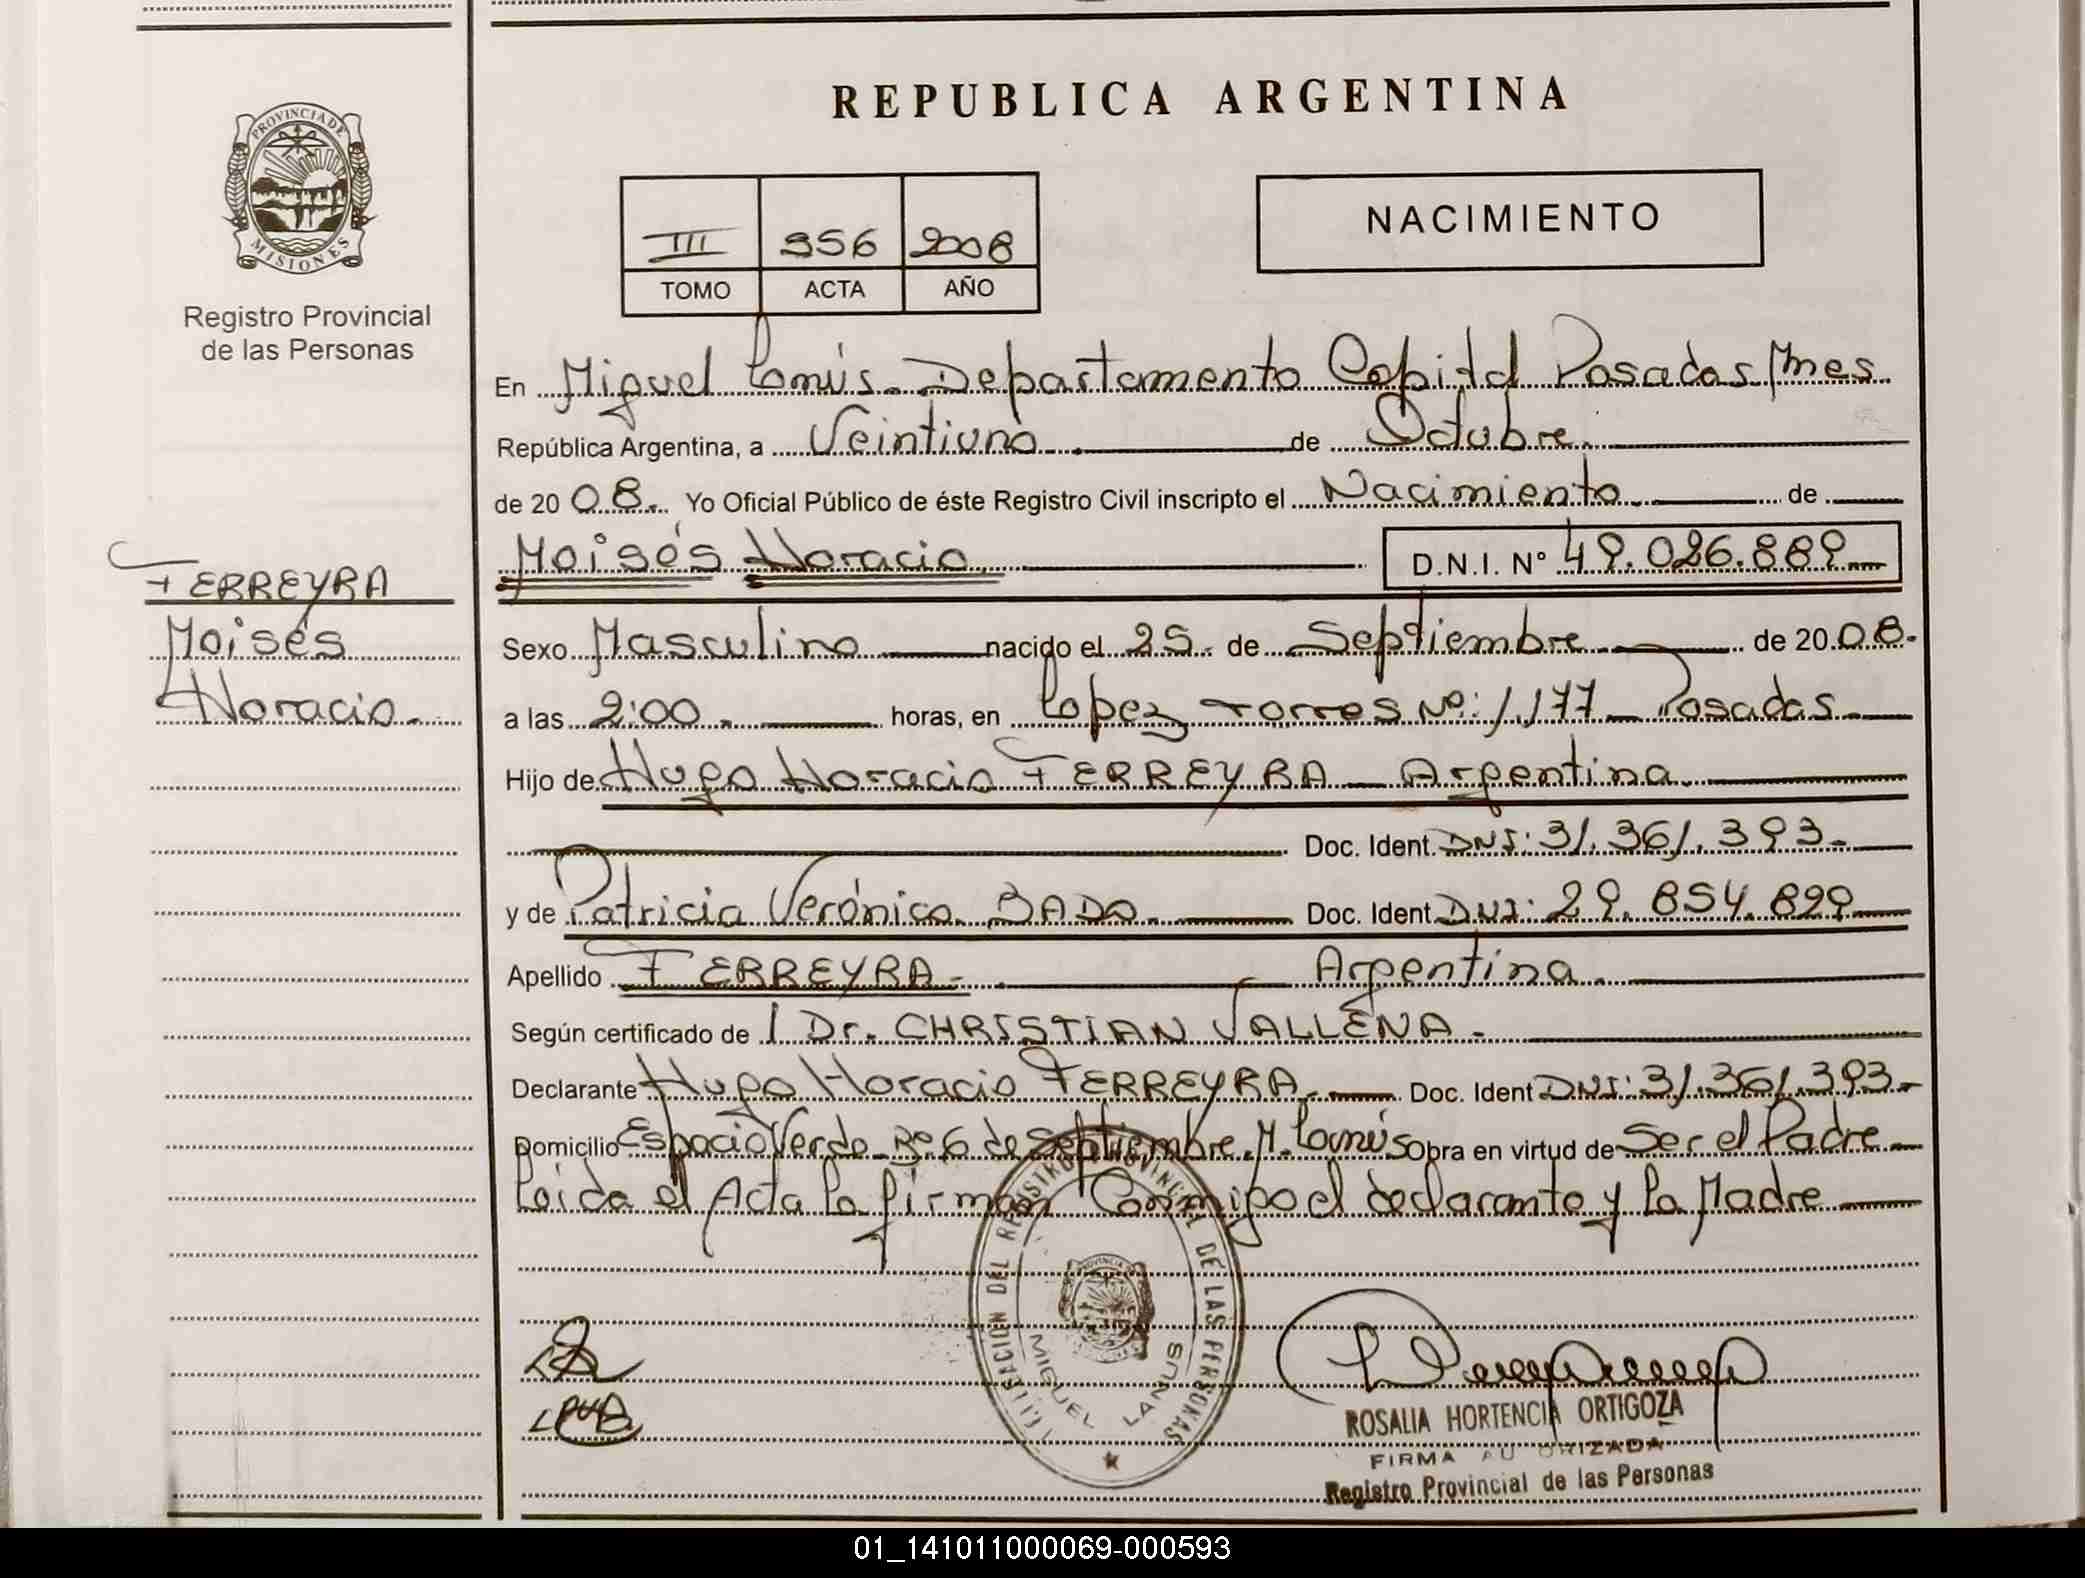 REPUBLICA ARGENTINA
PROVINCIA DE
MISIONES
Registro Provincial
de las Personas
III 956 2008
TOMO ACTA AÑO
NACIMIENTO
En Miguel Lanús. Departamento Capital Posadas Mnes.
República Argentina, a Veintiuno de Octubre
de 20 08. Yo Oficial Público de éste Registro Civil inscripto el Nacimiento de
Moisés Horacio D.N.I. Nº 49.026.889
FERREYRA
Moisés
Horacio.
Sexo Masculino nacido el 25. de Septiembre de 20 08.
a las 2:00. horas, en Lopez Torres Nº: 1.177 Posadas.
Hijo de Hugo Horacio FERREYRA Argentina
Doc. Ident. DNI: 31.361.393.
y de Patricia Verónica BADO. Doc. Ident DNI: 29.854.829
Apellido FERREYRA. Argentina
Según certificado de Dr. CHRISTIAN VALLENA.
Declarante Hugo Horacio FERREYRA. Doc. Ident DNI: 31.361.393.
Domicilio Espacio Verde Bº 6 de Septiembre. M. Lanús Obra en virtud de Ser el Padre
Leida el Acta la firman Conmigo el declarante y la Madre
REGISTRO PROVINCIAL DE LAS PERSONAS
MIGUEL LANUS
ROSALIA HORTENCIA ORTIGOZA
FIRMA AUTORIZADA
Registro Provincial de las Personas
01_141011000069-000593